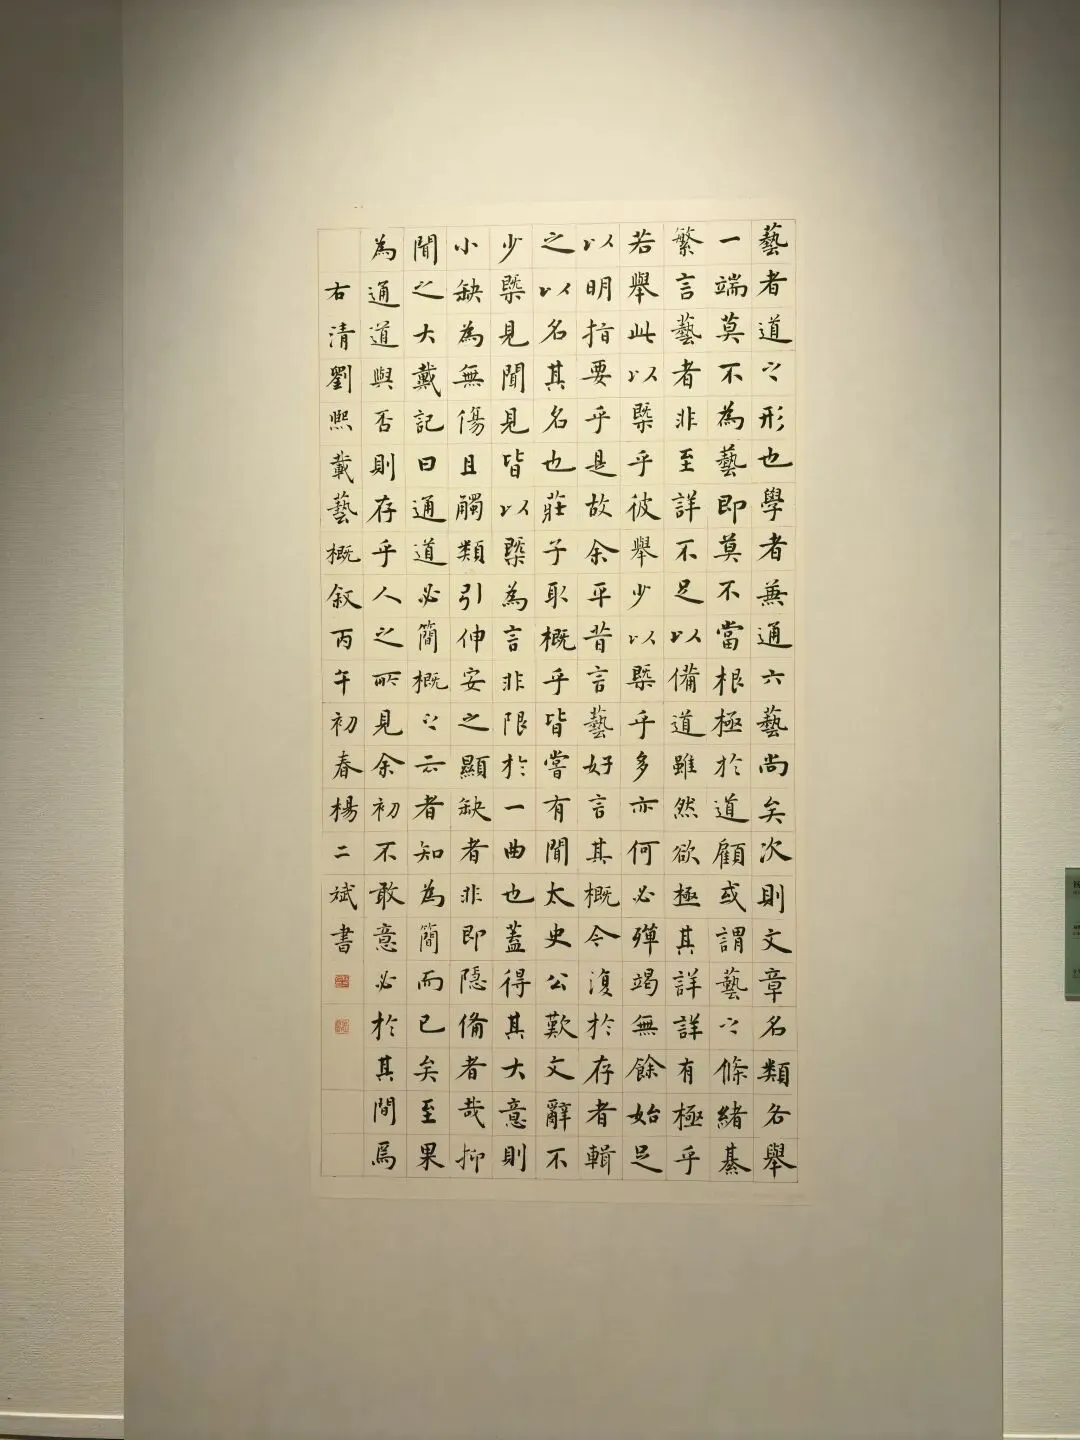 藝者道之形也學者兼通六藝尚矣次則文章名類各舉
一端莫不為藝即莫不當根極於道顧或謂藝之條緒綦
繁言藝者非至詳不足以備道雖然欲極其詳詳有極乎
若舉此以槩乎彼舉少以槩乎多亦何必殫竭無餘始足
以明指要乎是故余平昔言藝好言其概今復於存者輯
之以名其名也莊子取概乎皆嘗有聞太史公歎文辭不
少槩見聞見皆以槩為言非限於一曲也蓋得其大意則
小缺為無傷且觸類引伸安之顯缺者非即隱備者哉抑
聞之大戴記曰通道必簡概之云者知為簡而已矣至果
為通道與否則存乎人之所見余初不敢意必於其間焉
右清劉熙載藝概叙丙午初春楊二斌書